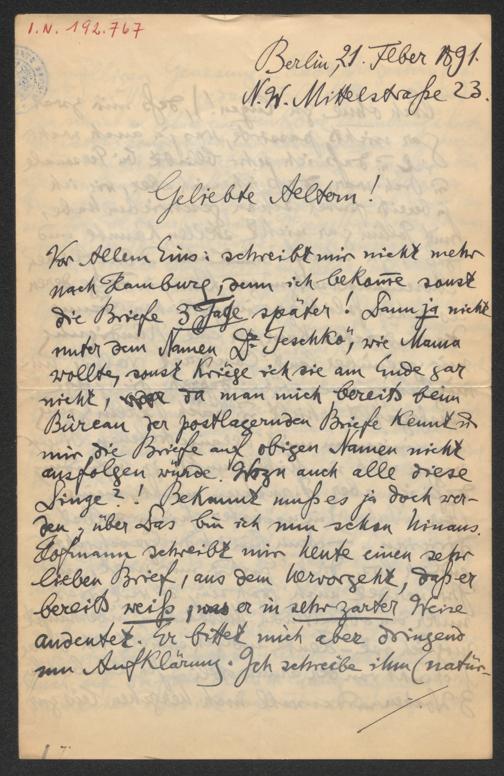 I.N. 192.767
Berlin, 21. Feber 1891.
N.W. Mittelstraße 23.
Geliebte Aeltern!
Vor Allem Eins: schreibt mir nicht mehr
nach Hamburg, denn ich bekomme sonst
die Briefe 3 Tage später! Dann ja nicht
unter dem Namen "Dr. Jeschko", wie Mama
wollte, sonst kriege ich sie am Ende gar
nicht, da man mich bereits beim
Büreau der postlagernden Briefe kennt u
mir die Briefe auf obigen Namen nicht
ausfolgen würde. Wozu auch alle diese
Dinge?! Bekannt muß es ja doch wer-
den; über Das bin ich nun schon hinaus.
Hofmann schreibt mir heute einen sehr
lieben Brief, aus dem hervorgeht, daß er
bereits weiß, was er in sehr zarter Weise
andeutet. Er bittet mich aber dringend
um Aufklärung. Ich schreibe ihm (natür-